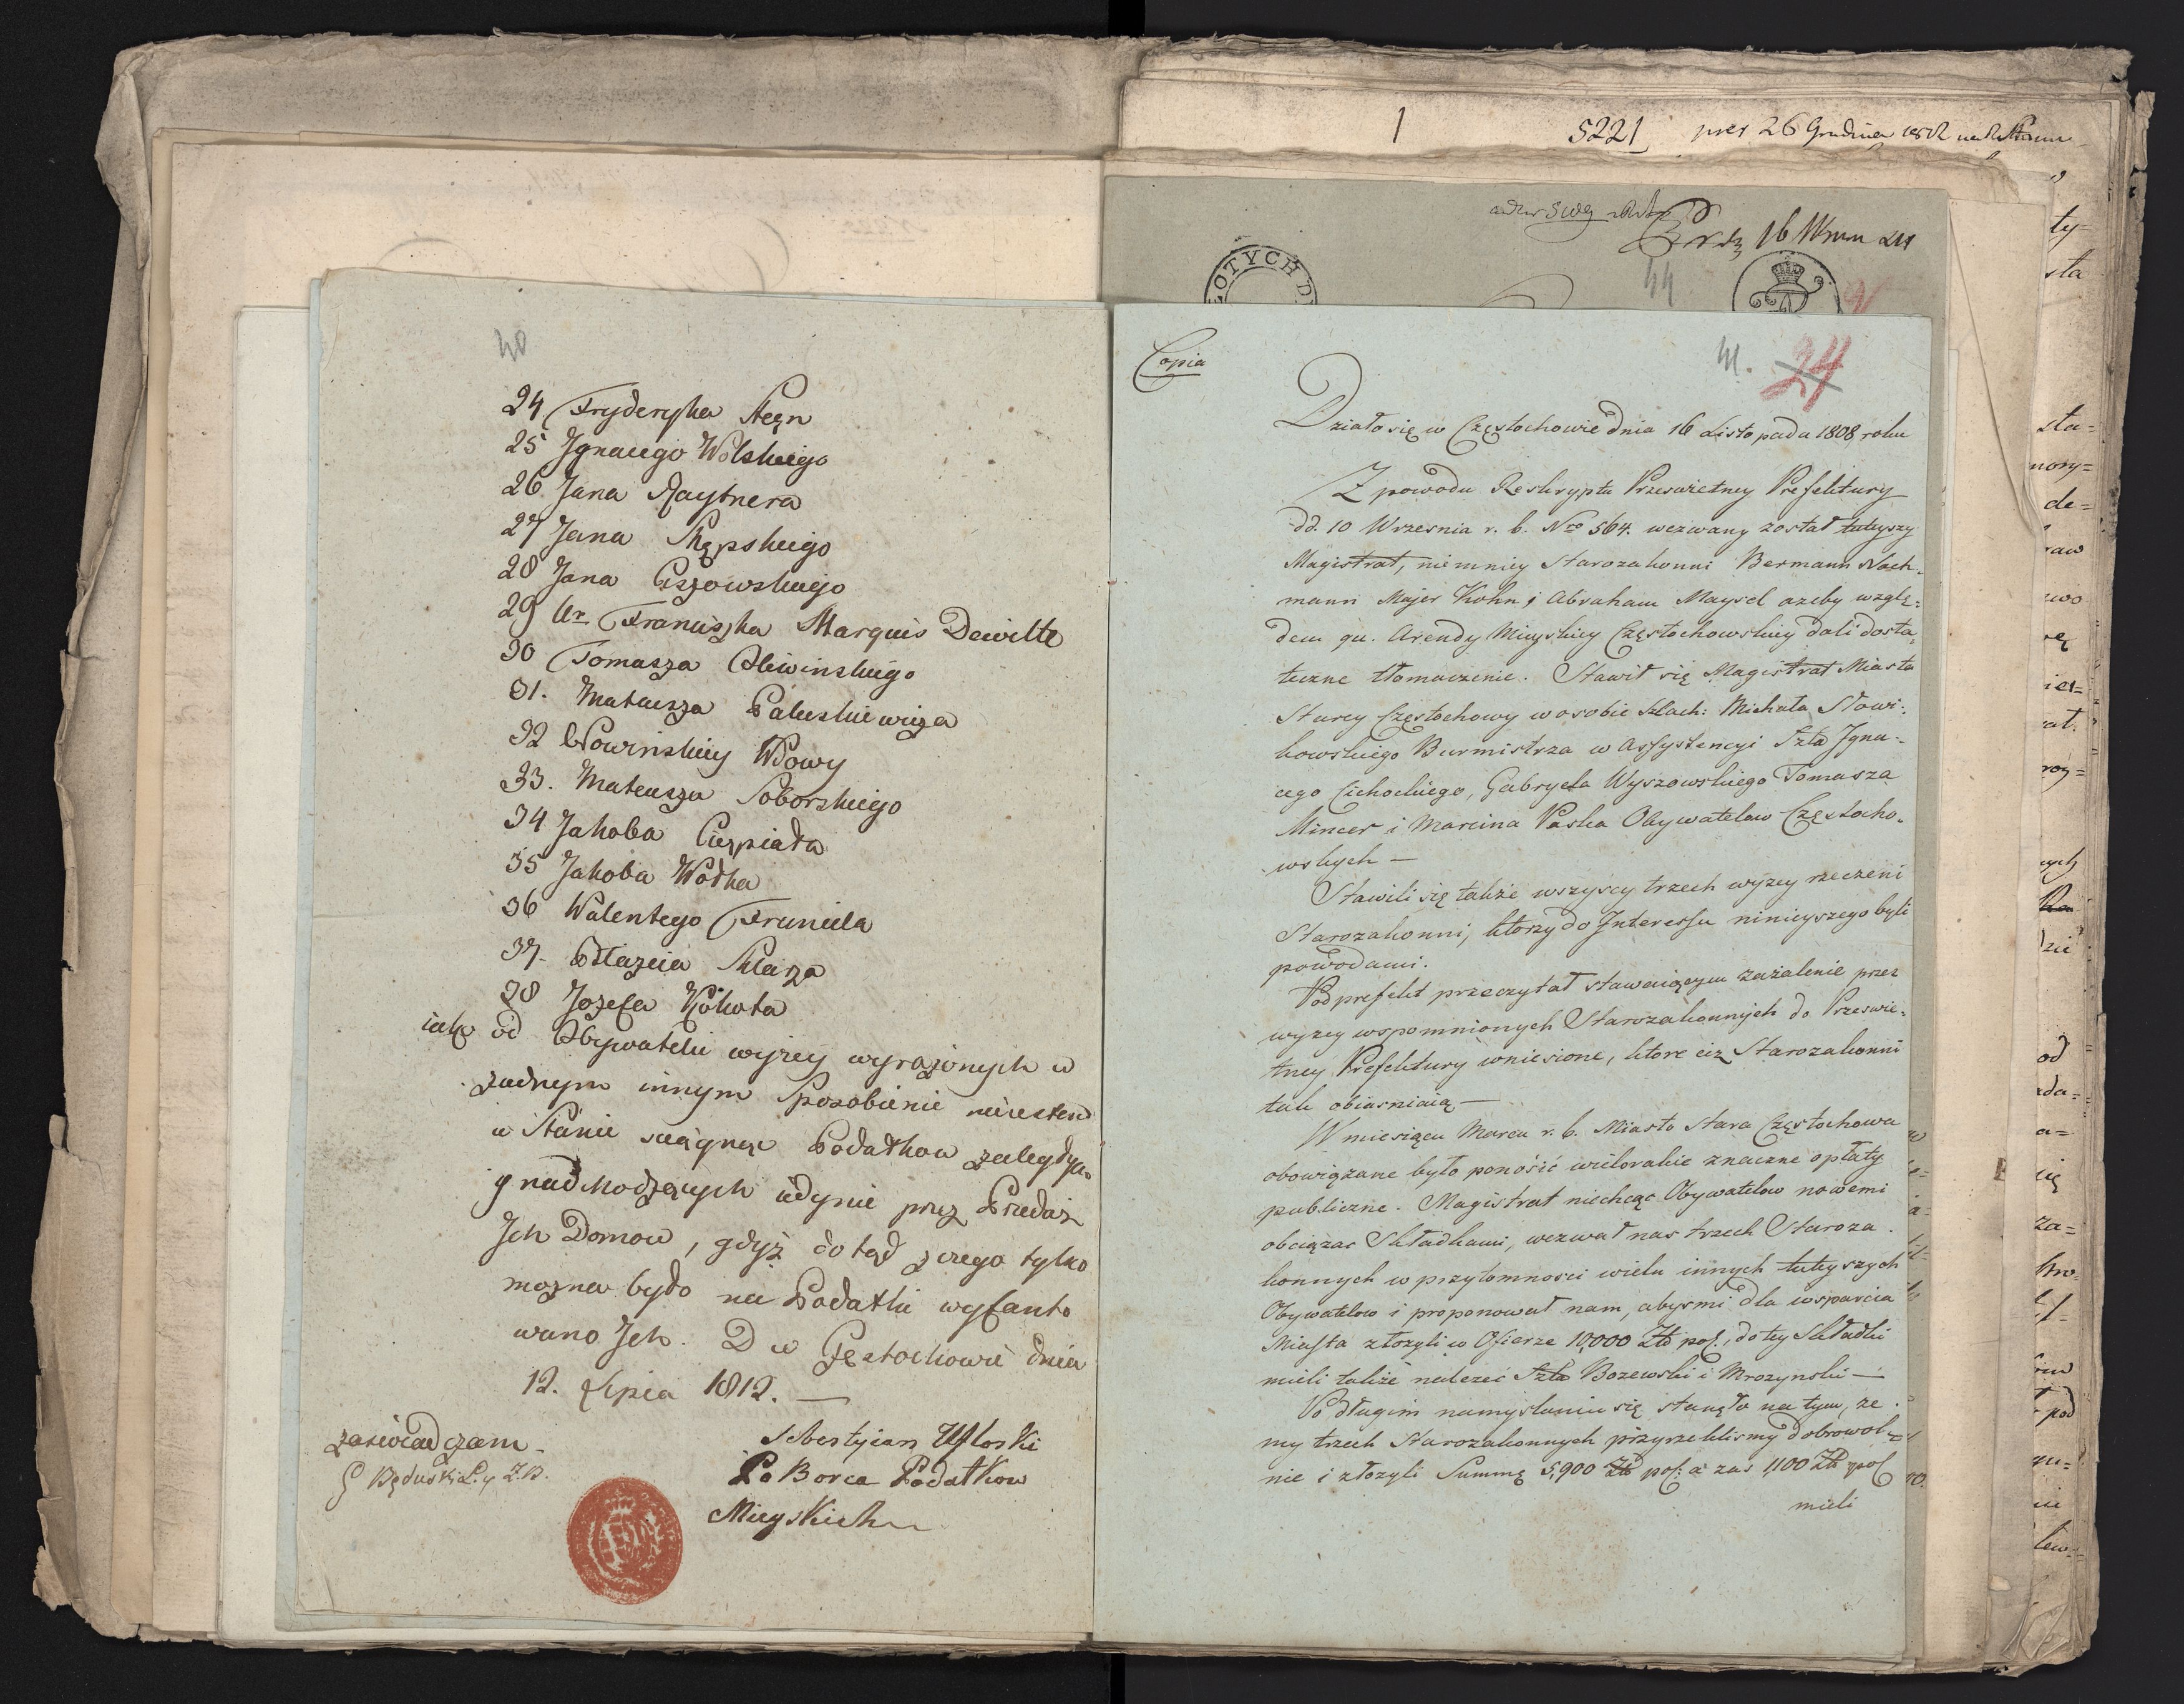 40
24 Fryderyka Stęzn
25 Jgnacego Wolskiego
26 Jana Raytnera
27 Jana Skępskiego
28 Jana Ciszowskiego
29 Ur Franciszka Marquis Dewitte
30 Tomasza Oliwinskiego
31. Mateusza Paluszkiewicza
32 Nowinskiey Wdowy
33. Mateusza Soborskiego
34 Jakoba Cierpiała
35 Jakoba Wodka
36 Walentego Franiela
37. Błażeia Sklarza
38 Jozefa Kokota
iako od Obywateli wyżey wyrażonych w
żadnym innym Sposobienie niiestem
w Stanie sciągnąc Podatkow zaległych
y nadchodzących iedynie przez Przedaż
Jch Domow, gdyż dotąd z czego tylko
mozna było na Podatki wyfanto
wano Jch. D w Częstochowie dnia
12. Lipca 1812. —
zaswiadczam
Sebestyian
Po Borca Podatkow
Mieyskich
1 5221 pres 26 Grudnia
16
44
ZŁOTYCH D
Copia
41. 24
Działo się w Częstochowie dnia 16 Listopada 1808 roku
Z powodu Reskryptu Przeswietney Prefektury
dd. 10 Wrzesnia r. b. Nro 564. wezwany został tuteyszy
Magistrat, niemniey Starozakonni Bermann Noch-
mann Majer Kohn i Abraham Maysel azeby wzglę-
dem qu. Arendy Mieyskiey Częstochowskiey dali dosta-
teczne tłomaczenie. Stawił się Magistrat Miasta
Starey Częstochowy w osobie Szlach: Michała Słowi-
kowskiego Burmistrza w Assystencyi Szla Jgna-
cego Cichockiego, Gabryela Wyszowskiego Tomasza
Mincer i Marcina Paska Obywatelow Częstocho-
wskych —
Stawili się także wszyscy trzech wyzey rzeczeni
Starozakonni, ktorzy do Jnteressu ninieyszego byli
powodami.
Podprefekt przeczytał stawaiącym zażalenie przez
wyzey wspomnionych Starozakonnych do Przeswie-
tney Prefektury wniesione, ktore ciz Starozakonni
tak obiasniaią —
W miesiącu Marcu r. b. Miasto Stara Częstochowa
obowiązane było ponosić wielorakie znaczne opłaty
publiczne. Magistrat niechcąc Obywatelow nowemi
obciązac Składkami, wezwał nas trzech Staroza-
konnych w przytomnosci wielu innych tuteyszych
Obywatelow i proponował nam, abysmi dla wsparcia
Miasta złozyli w Ofierze 10,000 Zło pol., do tey Składki
mieli także nalezeć Szla Bozewski i Mrozynski —
Po długim namyslaniu się stanęło na tym, ze
my trzech Starozakonnych przyrzeklismy dobrowol-
nie i złozyli Summę 5,900 Zło pol: a zas 1,100 Zło pol
mieli